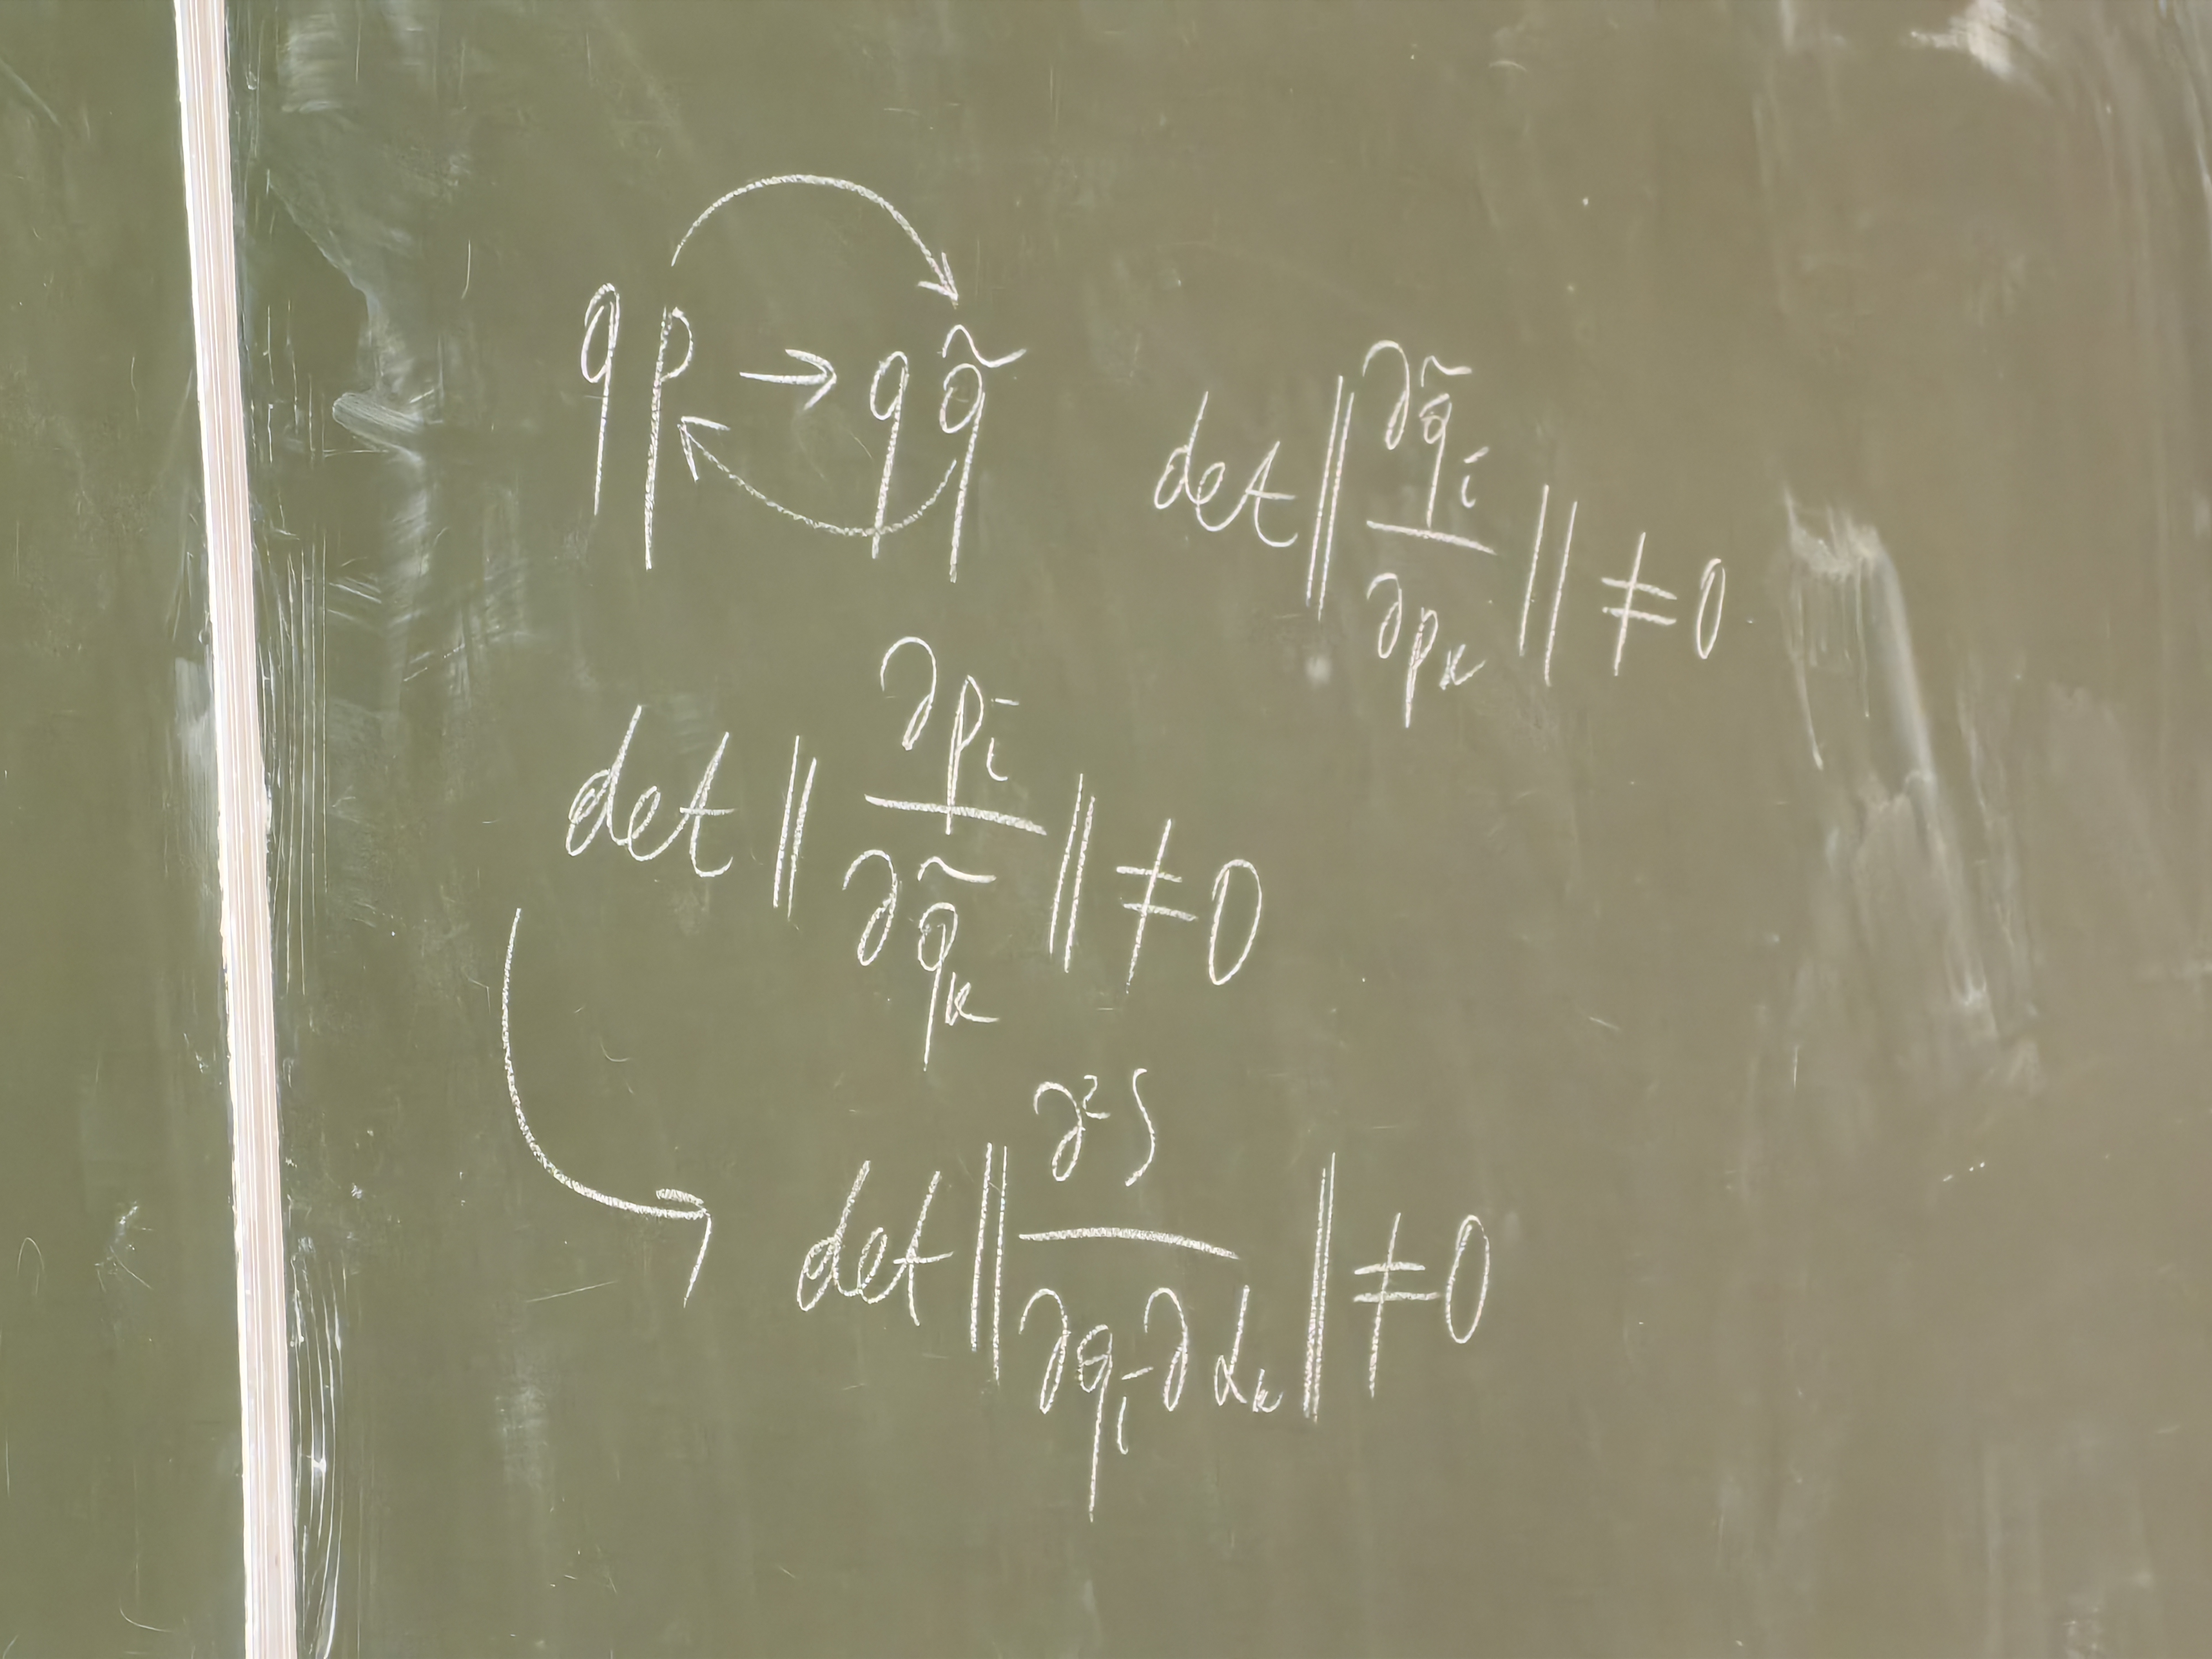 q p → q q̃
det ‖∂q̃ᵢ/∂pₖ‖ ≠ 0
det ‖∂pᵢ/∂q̃ₖ‖ ≠ 0
det ‖∂²S/∂qᵢ∂αₖ‖ ≠ 0